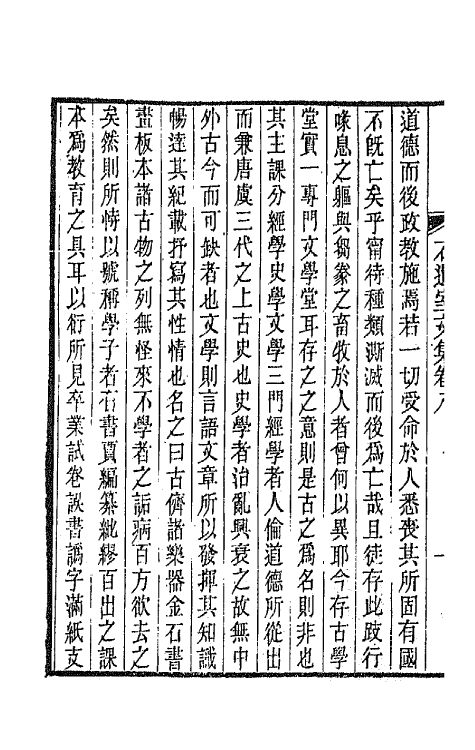 道德而後政教施焉若一切受命於人悉喪其所固有國
不旣亡矣乎甯待種類澌滅而後爲亡哉且徒存此跂行
喙息之軀與芻豢之畜牧於人者曾何以異耶今存古學
堂實一專門文學堂耳存之之意則是古之爲名則非也
其主課分經學史學文學三門經學者人倫道德所從出
而兼唐虞三代之上古史也史學者治亂興衰之故無中
外古今而可缺者也文學則言語文章所以發揮其知識
暢達其紀載抒寫其性情也名之曰古儕諸樂器金石書
畫板本諸古物之列無怪來不學者之詬病百方欲去之
矣然則所恃以號稱學子者有書賈編纂紕繆百出之課
本爲教育之具耳以衍所見卒業試卷誤書譌字滿紙支
石遺室文集卷八
一